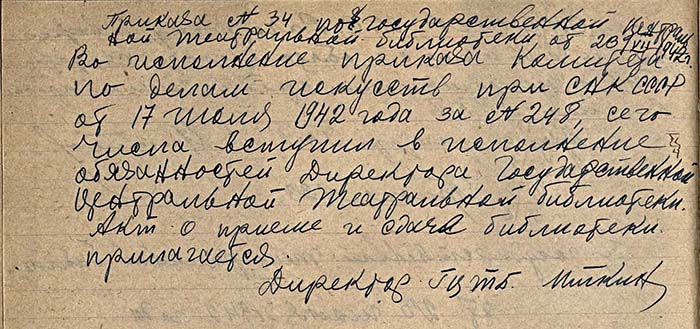 Приказа № 34 по Государственной Централь-
ной Театральной библиотеки от 20/VII 1942г.
Во исполнение приказа Комитета
по делам искусств при СНК СССР
от 17 июля 1942 года за № 248, сего
числа вступил в исполнение
обязанностей Директора Государственной
Центральной Театральной библиотеки.
Акт о приеме и сдаче библиотеки
прилагается.
Директор ГЦТБ. Иткин